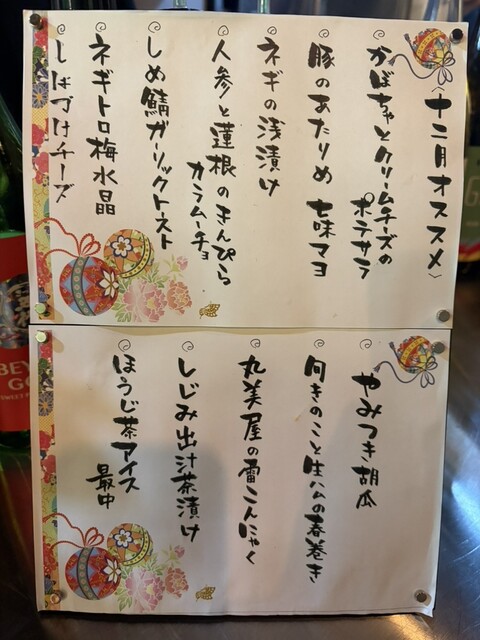 〈十二月オススメ〉
かぼちゃとクリームチーズの
ポテサラ
豚のあたりめ 七味マヨ
ネギの浅漬け
人参と蓮根のきんぴら
カラムーチョ
しめ鯖ガーリックトースト
ネギトロ梅水晶
しばづけチーズ
やみつき胡瓜
何きのこと生ハムの春巻き
丸美屋の雷こんにゃく
しじみ出汁茶漬け
ほうじ茶アイス
最中